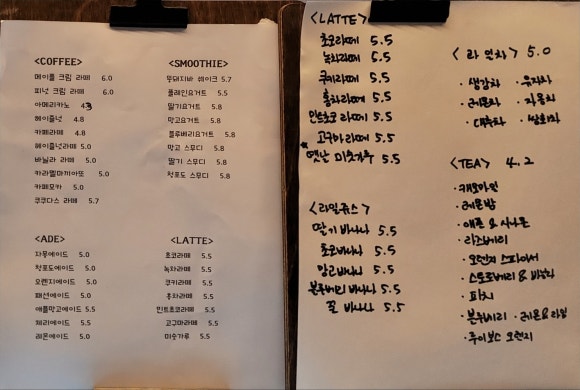 <COFFEE>
메이플 크림 라떼 6.0
피넛 크림 라떼 6.0
아메리카노 4.3
헤이즐넛 4.8
카페라떼 4.8
헤이즐넛라떼 5.0
바닐라 라떼 5.0
카라멜마끼아또 5.0
카페모카 5.0
쿠쿠다스 라떼 5.7
<SMOOTHIE>
뚱돼지바 쉐이크 5.7
플레인요거트 5.5
딸기요거트 5.8
망고요거트 5.8
블루베리요거트 5.8
망고 스무디 5.8
딸기 스무디 5.8
청포도 스무디 5.8
<ADE>
자몽에이드 5.0
청포도에이드 5.0
오렌지에이드 5.0
패션에이드 5.0
애플망고에이드 5.5
체리에이드 5.5
레몬에이드 5.0
<LATTE>
초코라떼 5.5
녹차라떼 5.5
쿠키라떼 5.5
홍차라떼 5.5
민트초코라떼 5.5
고구마라떼 5.5
미숫가루 5.5
<LATTE>
초코라떼 5.5
녹차라떼 5.5
쿠키라떼 5.5
홍차라떼 5.5
민트초코 라떼 5.5
고구마라떼 5.5
옛날 미숫가루 5.5
<라일쥬스>
딸기 바나나 5.5
초코바나나 5.5
망고바나나 5.5
블루베리 바나나 5.5
꿀 바나나 5.5
<라 역차> 5.0
·생강차 ·유자차
·레몬차 ·자몽차
·대추차 ·쌍화차
<TEA> 4.2
·캐모마일
·레몬밤
·애플 & 시나몬
·라즈베리
·오렌지 스파이서
·스트로베리 &
·피치
·블루베리 ·레몬&라임
·루이보스 오렌지